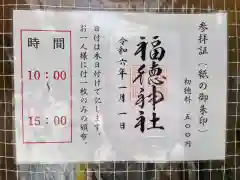 参拝証（紙の御朱印）
初穂料　五〇〇円
福徳神社
令和六年一月一日
日付は本日付けで記します。
お一人様に付一枚のみの頒布
時間
10:00
～
15:00